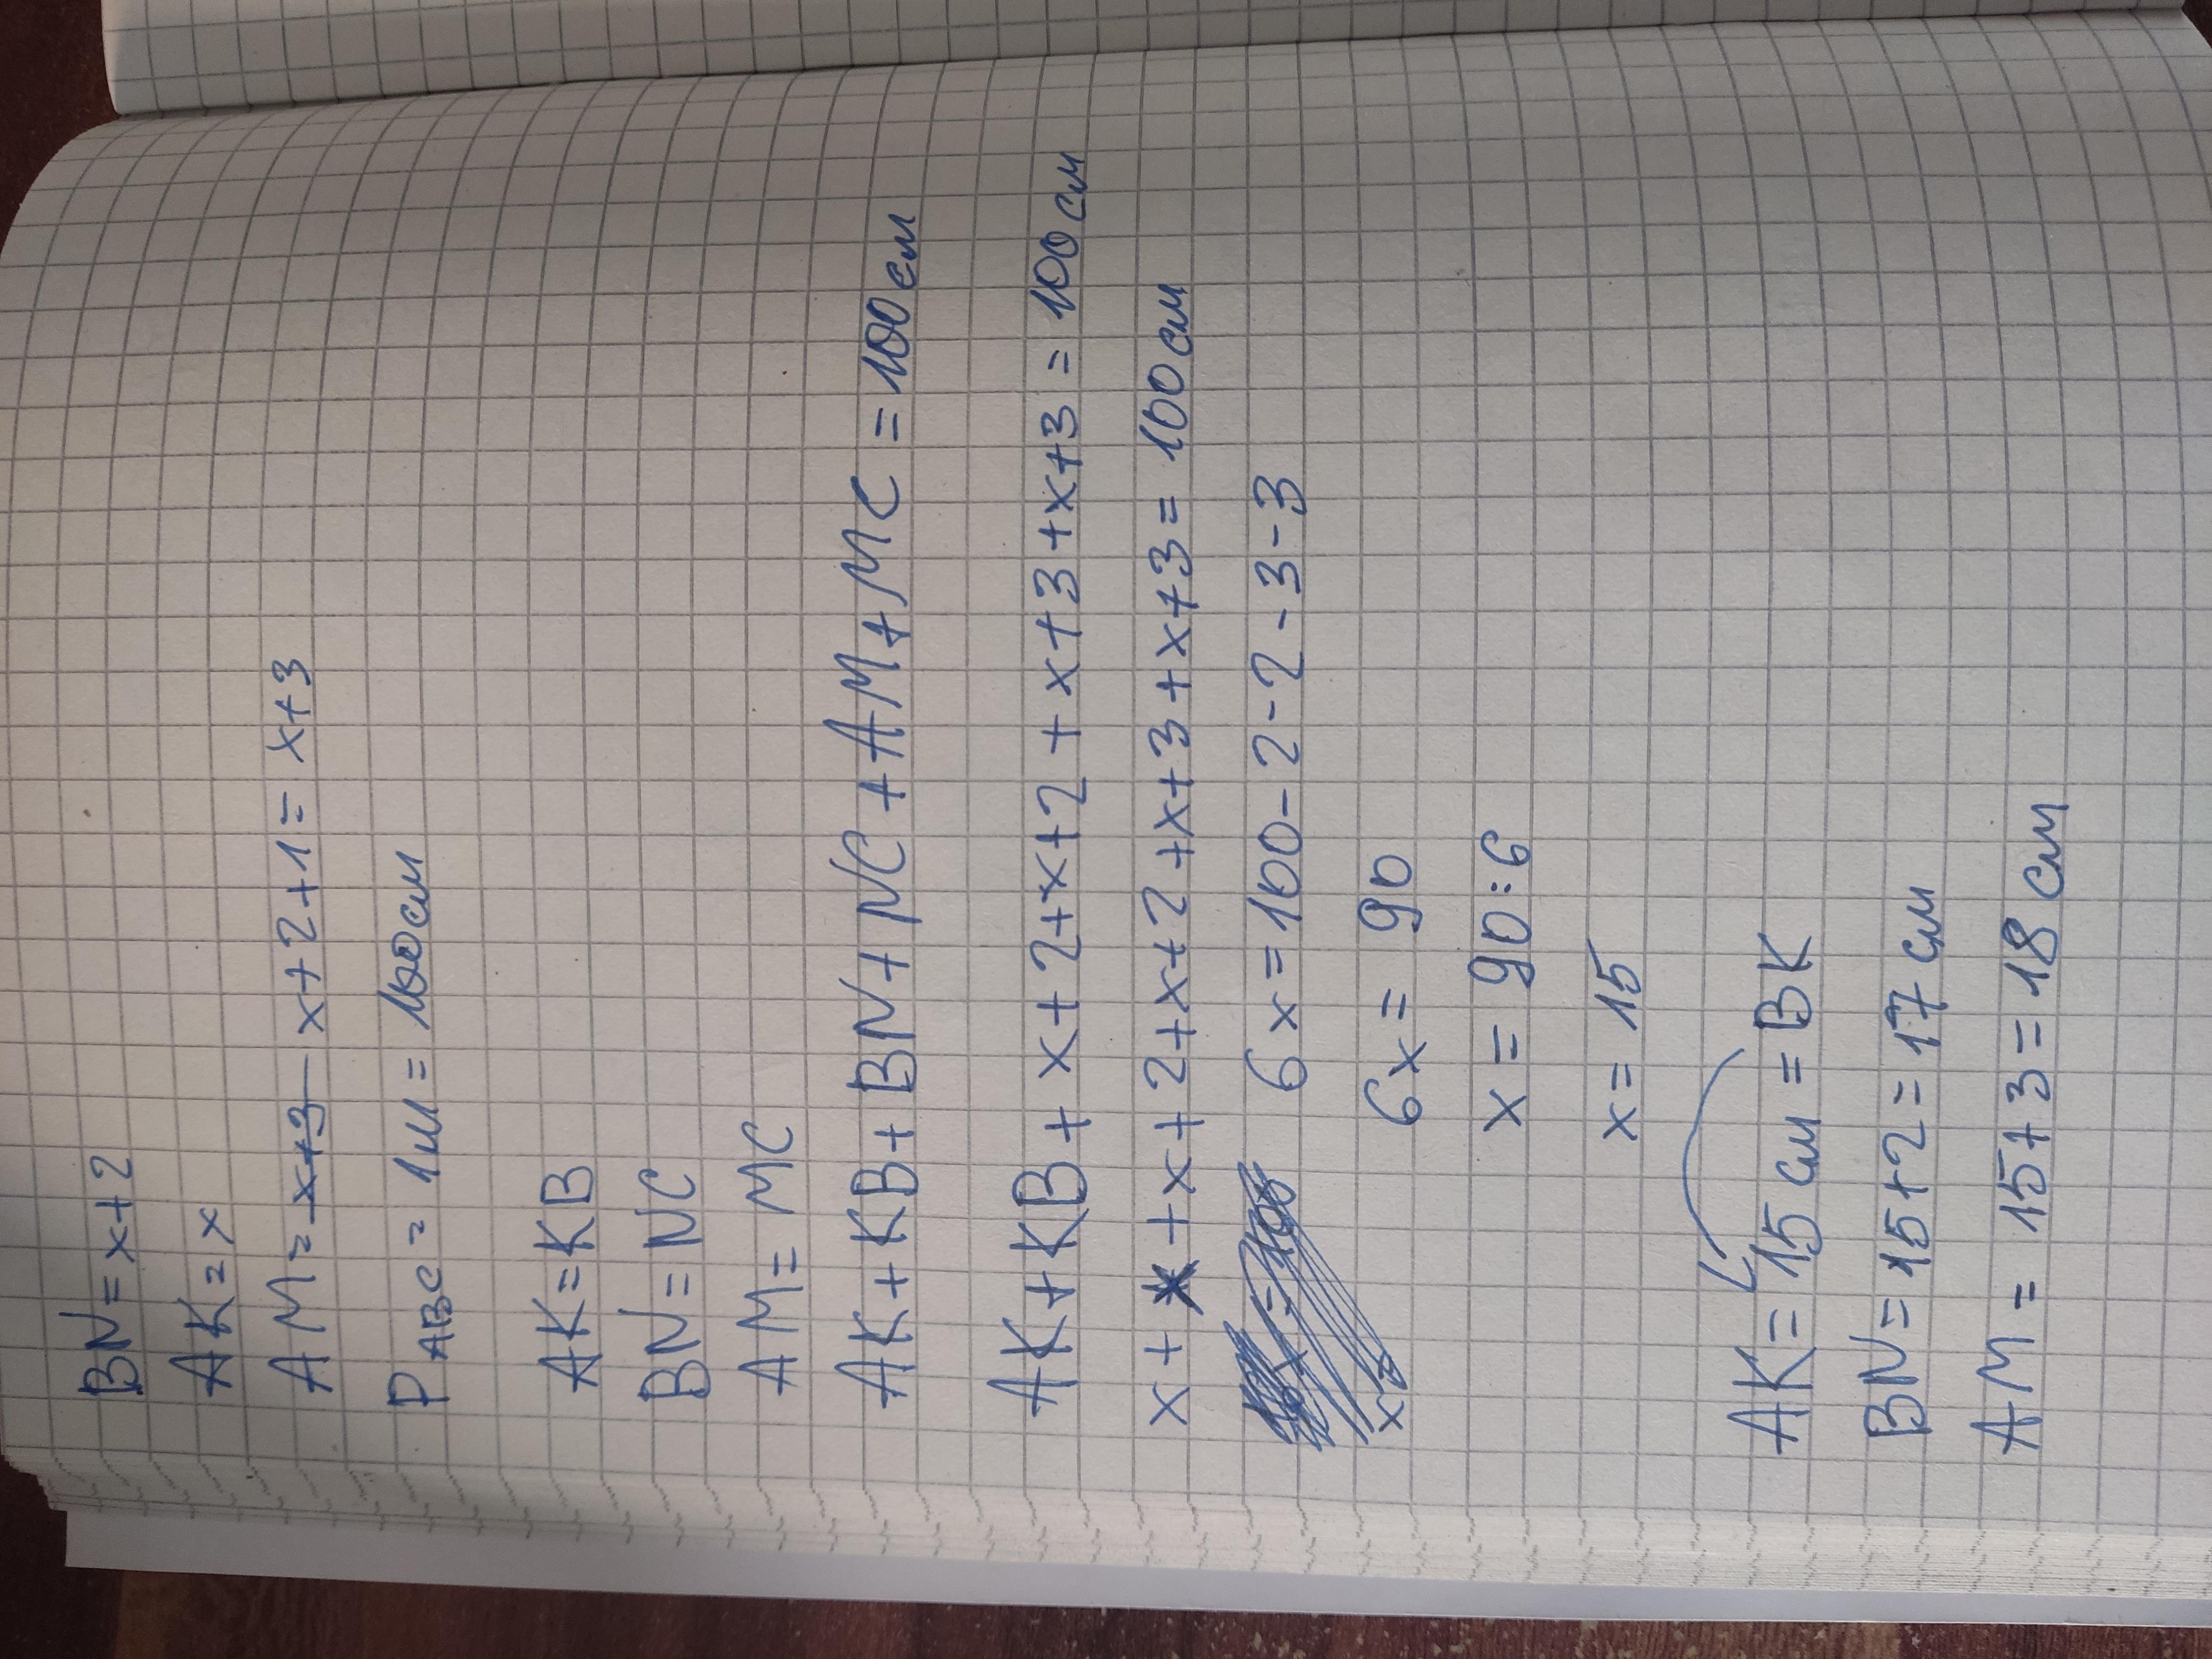 BN = x+2
AK = x
AM = x+3 x+2+1 = x+3
P ABC = 1м = 100см
AK = KB
BN = NC
AM = MC
AK + KB + BN + NC + AM + MC = 100см
AK + KB + x+2+x+2 + x+3+x+3 = 100см
x + x + x+2+x+2+x+3+x+3 = 100см
6x = 100-2-2-3-3
6x = 90
x = 90:6
x = 15
AK = 15 см = BK
BN = 15+2 = 17 см
AM = 15+3 = 18 см